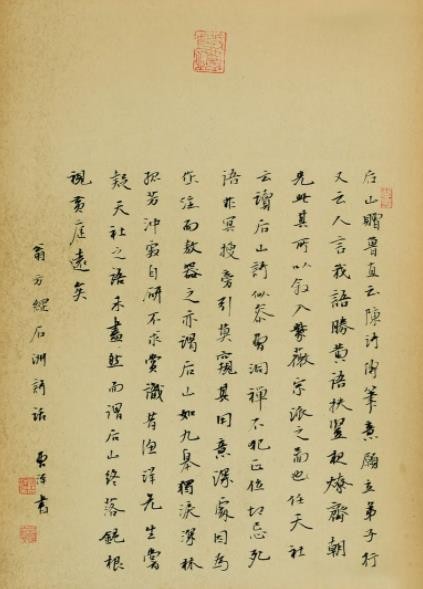 后山贈魯直云陳詩傳筆意願立弟子行
又云人言我語勝黃語扶竪夜燎齊朝
光此其所以叙入紫薇宗派之圖也任天社
云讀后山詩似參曹洞禪不犯正位切忌死
語非冥搜旁引莫窺其用意深處因爲
作注而敖器之亦謂后山如九皋獨淚深林
孤芳沖寂自研不求賞識昔漁洋先生嘗
疑天社之語未盡然而謂后山終落鈍根
視黃庭遠矣
翁方綱石洲詩話 書